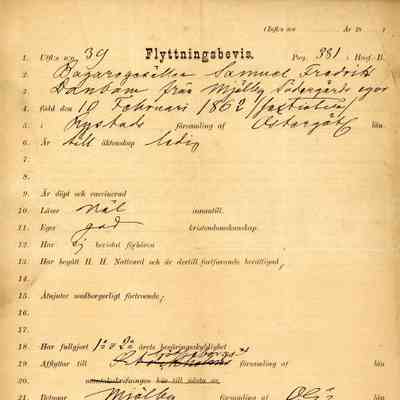 Utfl.: n:o 39 Flyttningsbevis. Pag. 381 i Husf.-B.
2. Bagaregesällen Samuel Fredrik
3. Danbom från Mjölby Södergårds egor
4. född den 10 Februari 1862 /sextiotvå/
5. i Rystads församling af Östergötl län.
6. Är till äktenskap ledig
7.
8.
9. Är döpt och vaccinerad
10. Läser nöl innantill.
11. Eger god kristendomskunskap.
12. Har ej bevistat förhören
13. Har begått H. H. Nattvard och är dertill fortfarande berättigad;
14.
15. Åtnjuter medborgerligt förtroende;
16.
17.
18. Har fullgjort 1:a o 2:a årets beväringsskyldighet
19. Afflyttar till församling af län
20. här till nästa år.
21. Betygar Mjölby församling af län